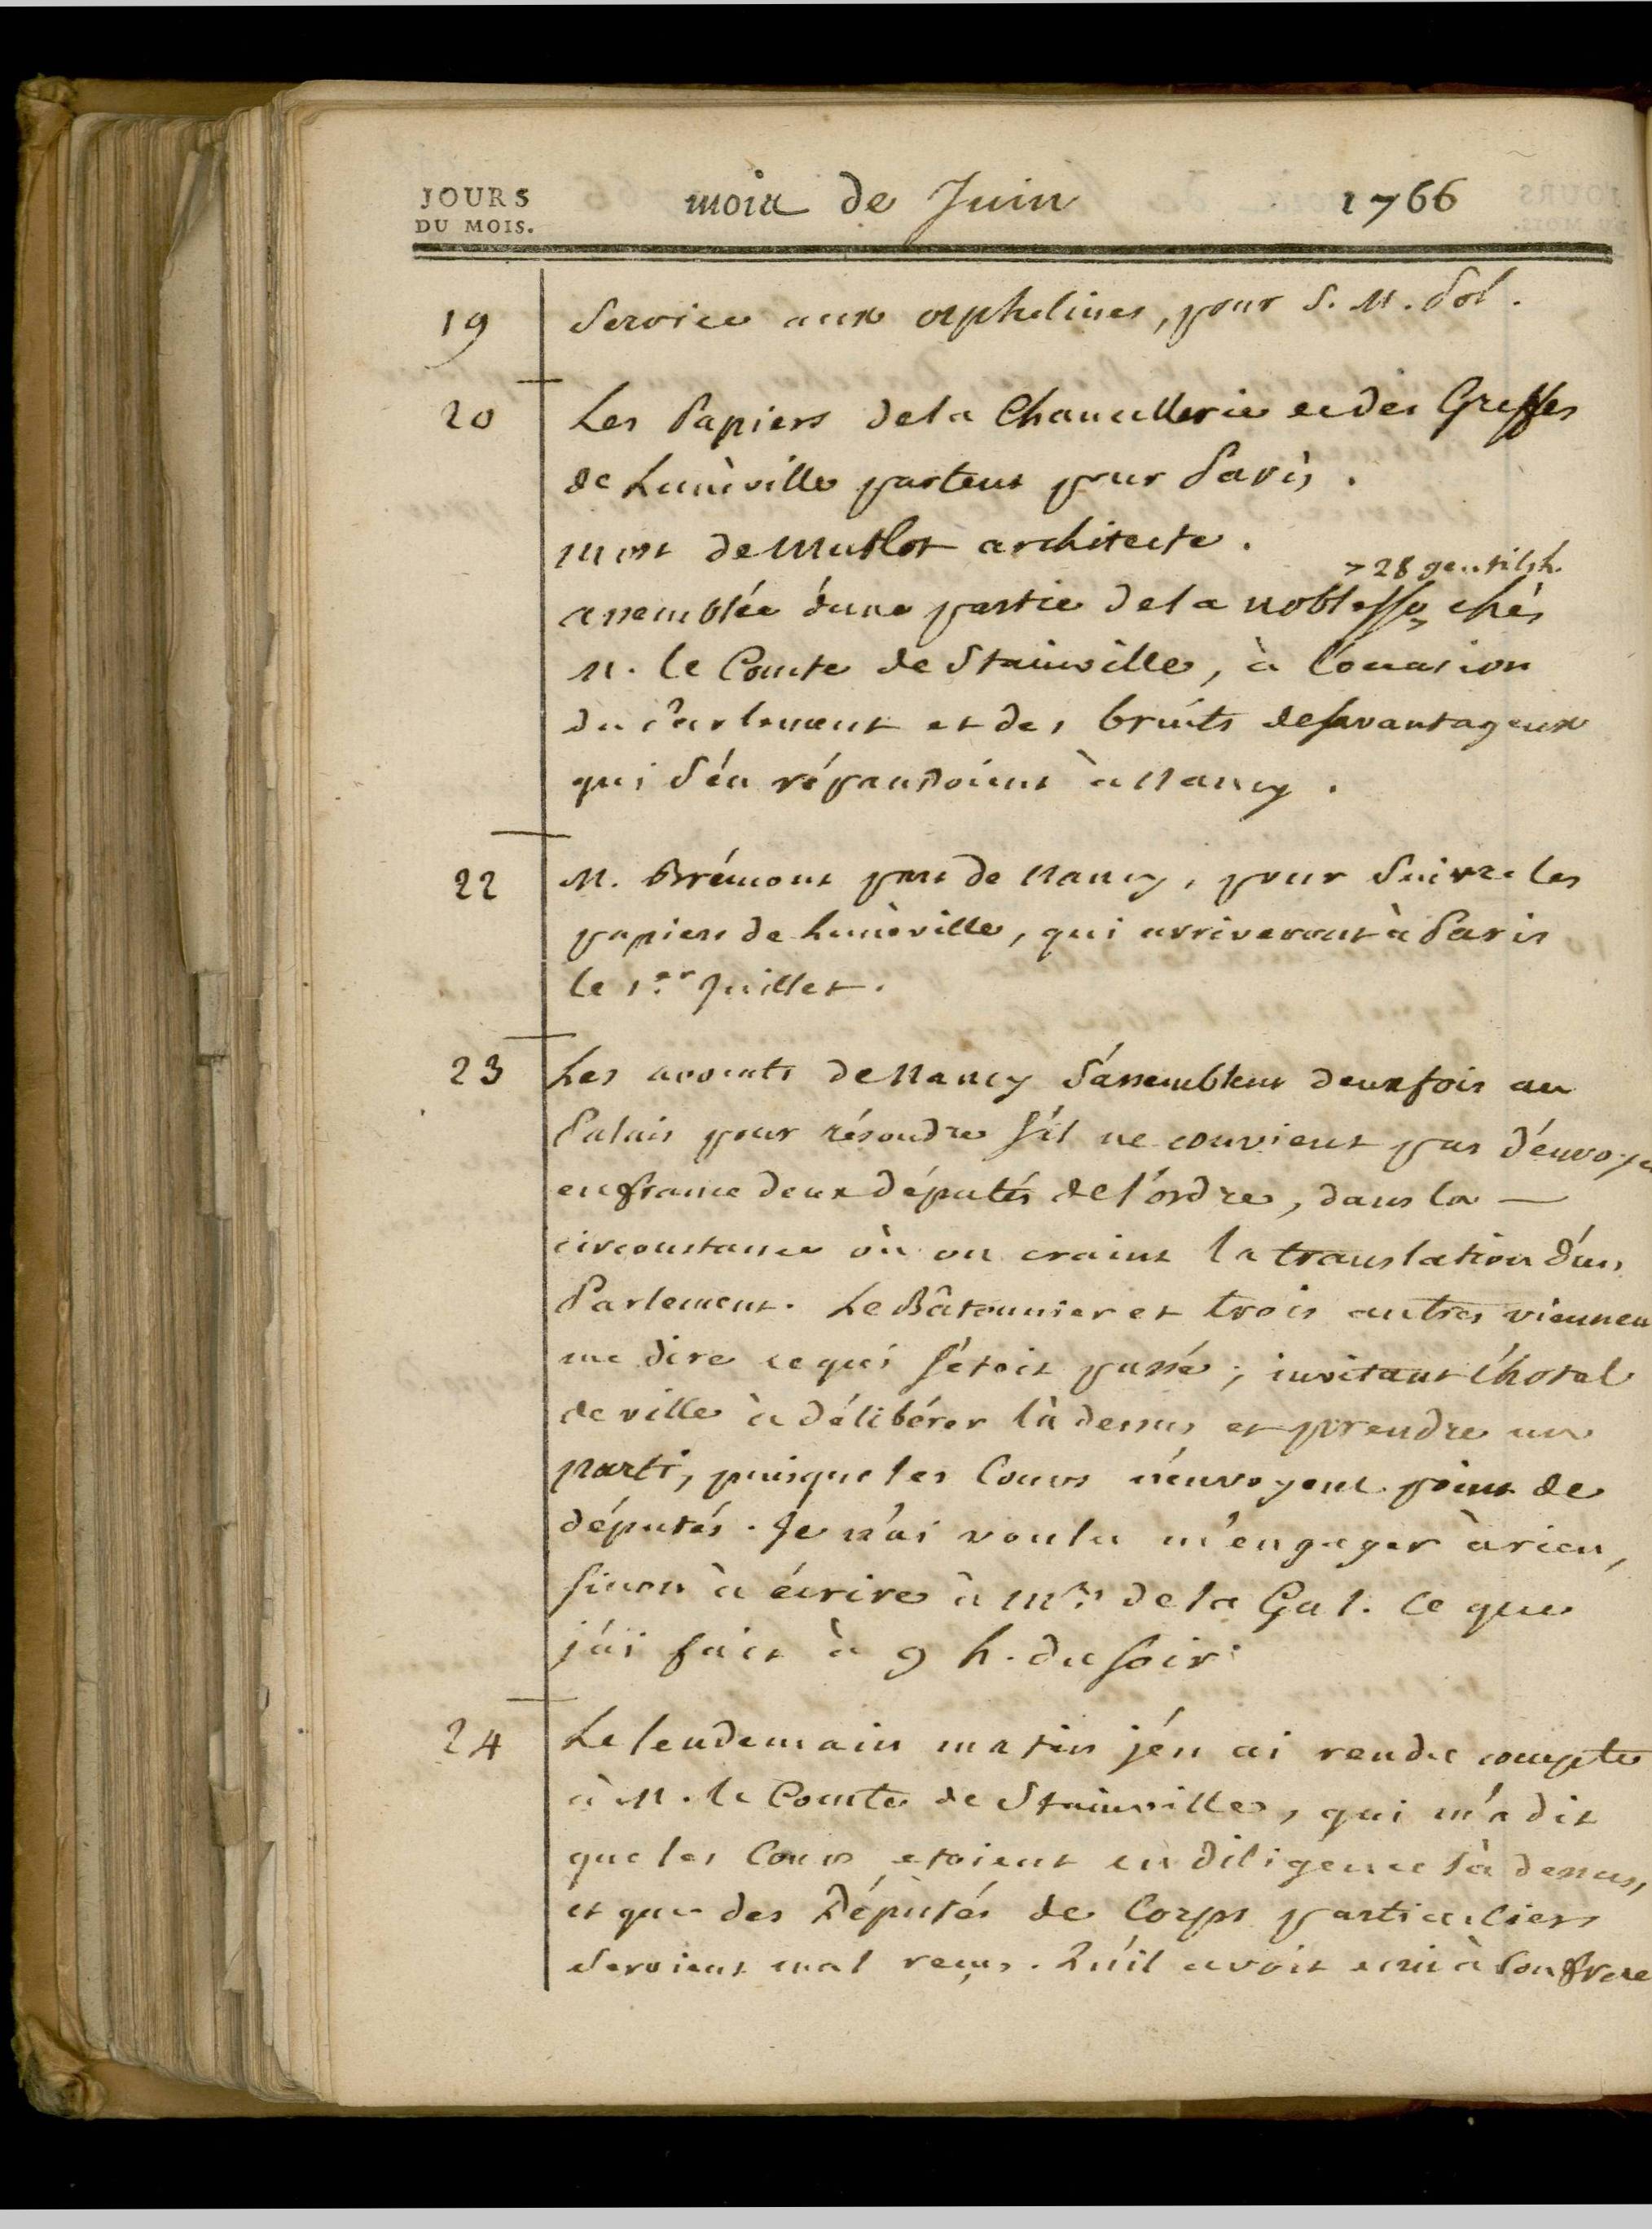 JOURS
DU MOIS.
mois de Juin 1766
19 Service aux orphelines, pour S. M. Pol.
20 Les Papiers dela Chancellerie et des Greffes
de Lunéville partent pour Paris.
mort de Mutlot architecte.
> 28 gentilsh.
assemblée d'une partie dela noblesse, chés
M. le Comte de Stainville, à l'occasion
du Parlement et des bruits desavantageux
qui s'en répandoient à Nancy.
22 M. Brémont part de Nancy, pour suivre les
papiers de Lunéville, qui arriveront à Paris
le 1.er Juillet.
23 Les avocats de Nancy s'assemblent deux fois au
Palais pour résoudre s'il ne convient pas d'envoye
en france deux députés de l'ordre, dans la —
circonstance où on craint la translation d'un
Parlement. Le Bâtonnier et trois autres viennen
me dire ce qui s'étoit passé; invitant l'hotel
de ville à délibérer là dessus et prendre un
parti, puisque les Cours n'envoyent point de
députés. Je n'ai voulu m'engager à rien,
sinon à écrire à Mr. de la Gal. ce que
j'ai fait à 9 h. du soir.
24 Le lendemain matin j'en ai rendu compte
à M. le Comte de Stainville, qui m'a dit
que les Cours etoient en diligence là dessus,
et que des Députés de Corps particuliers
seroient mal reçus. Qu'il avoit écrit à son frere